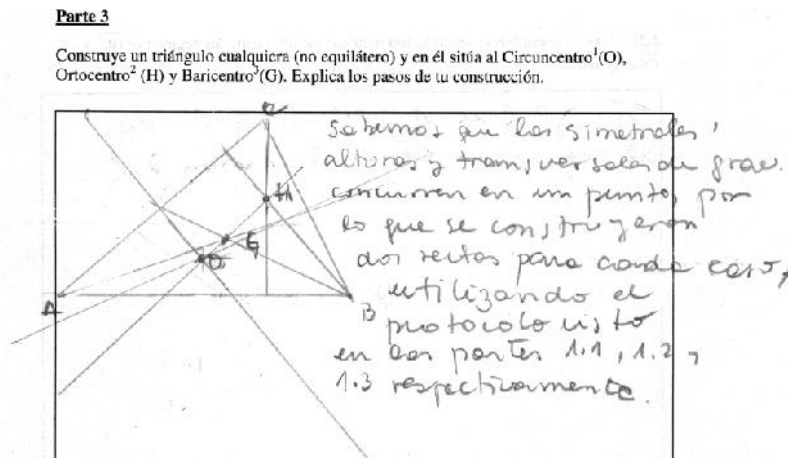 Parte 3
Construye un triángulo cualquiera (no equilátero) y en él sitúa al Circuncentro¹(O),
Ortocentro² (H) y Baricentro³(G). Explica los pasos de tu construcción.
C
Sabemos que las simetrales,
alturas y transversales de grav.
concurren en un punto, por
lo que se construyeron
dos rectas para cada caso,
utilizando el
protocolo visto
en las partes 1.1, 1.2,
1.3 respectivamente.
H
G
O
A
B